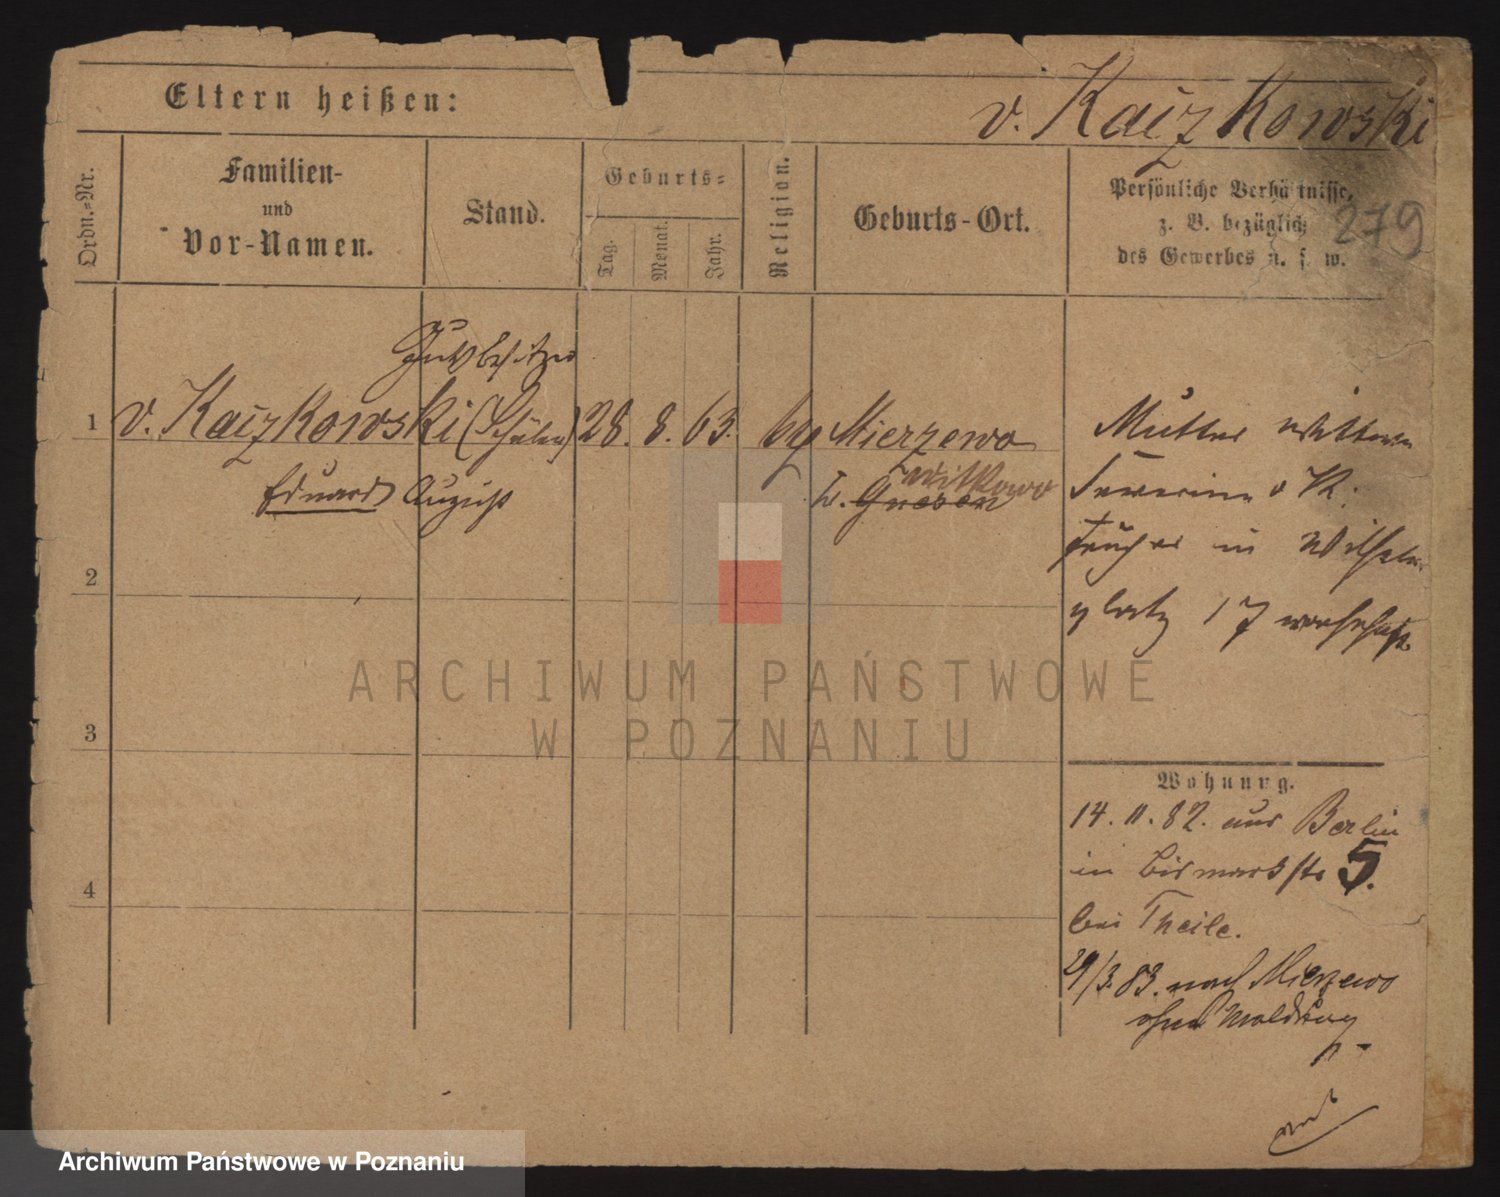 Eltern heißen:
v. Kaizkowski
Ordn.-Nr.
Familien-
und
Vor-Namen.
Stand.
Geburts-
Tag.
Monat.
Jahr.
Religion.
Geburts-Ort.
Persönliche Verhältnisse,
z. B. bezüglich
des Gewerbes u. s. w.
279
Gutsbesitzer
1 v. Kaizkowski (Schüler) 28. 8. 63. Mierzewo
Eduard August
Witkowo
Gnesen
Mutter
v K.
früher in Wilhelm
platz 17 wohnhaft
2
3
4
Wohnung.
14. 11. 82. aus Berlin
in Bismarkstr 5.
bei Theile.
29/3. 83. nach Mierzewo
ohne Meldung
ARCHIWUM PAŃSTWOWE
W POZNANIU
Archiwum Państwowe w Poznaniu